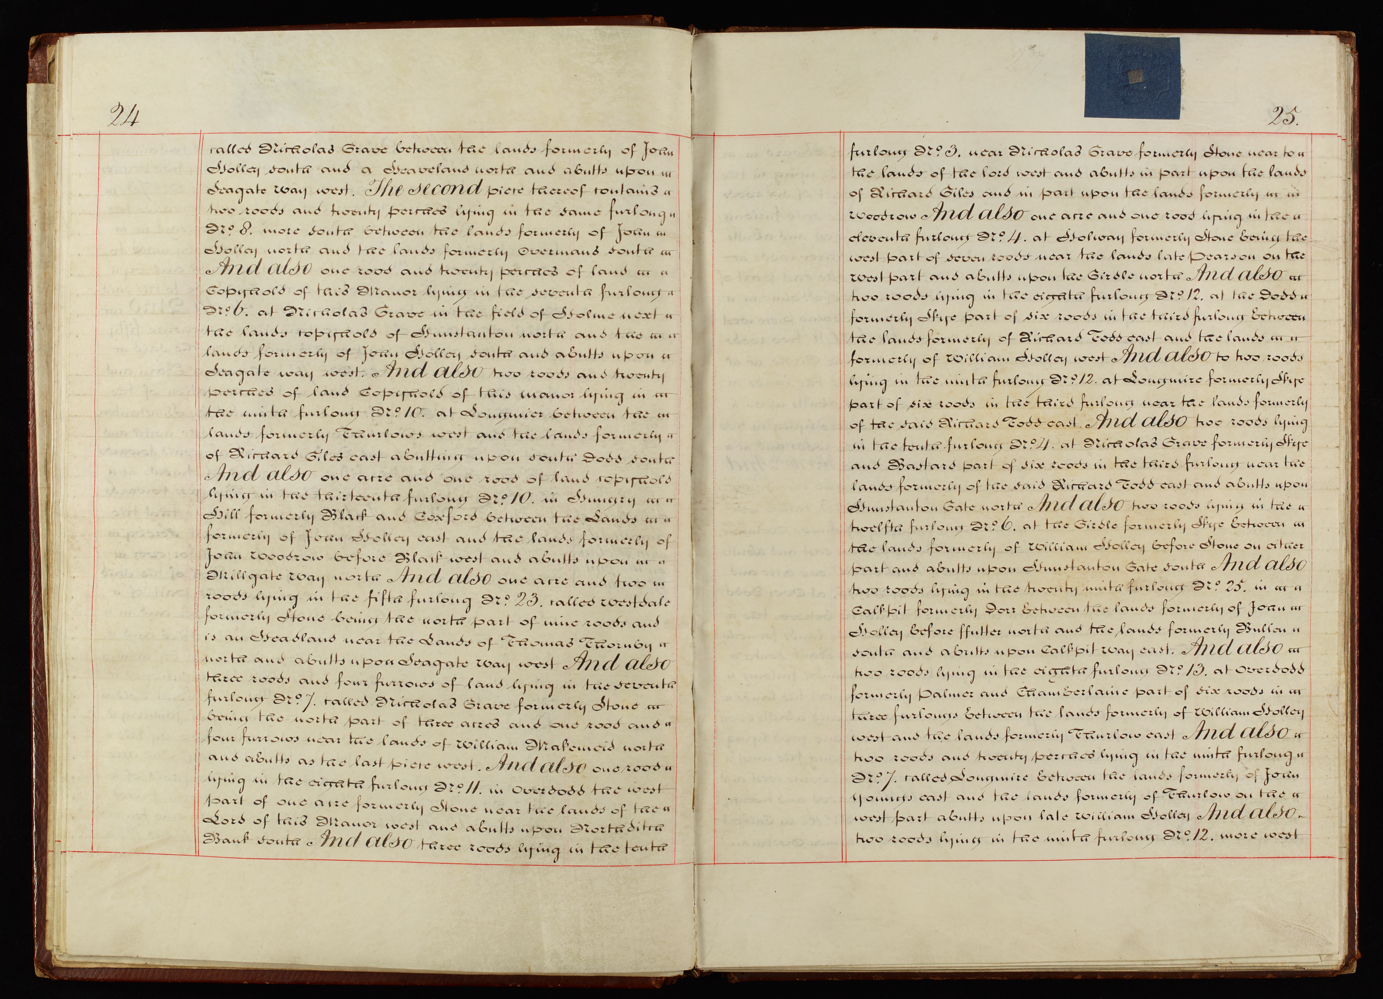 24
called Nicholas Grave between the lands formerly of John
Holley south and a Heaveland north and abutts upon
Seagate way west. The second piece thereof contains
two roods and twenty perches lying in the same furlong
No. 8. more south between the lands formerly of John
Holley north and the lands formerly Overmans south
And also one rood and twenty perches of land
Copyhold of this Manor lying in the seventh furlong
No. 6. at Nicholas Grave in the field of Holme next
the lands copyhold of Hunstanton north and the
lands formerly of John Holley south and abutts upon
Seagate way west. And also two roods and twenty
perches of land Copyhold of this manor lying in
the ninth furlong No. 10. at Longmier between the
lands formerly Thurlows west and the lands formerly
of Richard Giles east abutting upon south Dodd south
And also one acre and one rood of land copyhold
lying in the thirteenth furlong No. 10. in Hungry
Hill formerly Black and Coxford between the Lands
formerly of John Holley east and the lands formerly of
John Woodrow before Black west and abutts upon
Millgate way north And also one acre and two
roods lying in the fifth furlong No. 23. called Westdale
formerly Stone being the north part of nine roods and
is an Headland near the Lands of Thomas Thornby
north and abutts upon Seagate way west And also
three roods and four furrows of land lying in the seventh
furlong No. 7. called Nicholas Grave formerly Stone
being the north part of three acres and one rood and
four furrows near the lands of William Makemeid north
and abutts as the last piece west. And also one rood
lying in the eighth furlong No. 11. in Overdodd the west
part of one acre formerly Stone near the lands of the
Lord of this Manor west and abutts upon Northditch
Bank south And also three roods lying in the tenth
25.
furlong No. 3. near Nicholas Grave formerly Stone near to
the lands of the lord west and abutts in part upon the lands
of Richard Giles and in part upon the lands formerly
Woodrow And also one acre and one rood lying in the
eleventh furlong No. 4. at Holway formerly Stone being the
west part of seven roods near the lands late Pearson on the
west part and abutts upon the Girdle north And also
two roods lying in the eighth furlong No. 12. at the Dodd
formerly Skye part of six roods in the third furlong between
the lands formerly of Richard Todd east and the lands
formerly of William Holley west And also to two roods
lying in the ninth furlong No. 12. at Longmire formerly Skye
part of six roods in the third furlong near the lands formerly
of the said Richard Todd east. And also two roods lying
in the tenth furlong No. 4. at Nicholas Grave formerly Skye
and Bastard part of six roods in the third furlong near the
lands formerly of the said Richard Todd east and abutts upon
Hunstanton Gate north And also two roods lying in the
twelfth furlong No. 6. at the Girdle formerly Skye between
the lands formerly of William Holley before Stone on either
part and abutts upon Hunstanton Gate south And also
two roods lying in the twenty ninth furlong No. 25. in
Calkpit formerly Dorr between the lands formerly of John
Holley before ffutter north and the lands formerly Bullen
south and abutts upon Calkpit way east. And also
two roods lying in the eighth furlong No. 13. at Overdodd
formerly Palmer and Chamberlaine part of six roods in
three furlongs between the lands formerly of William Holley
west and the lands formerly Thurlow east And also
two roods and twenty perches lying in the ninth furlong
No. 7. called Longmire between the lands formerly of John
Youngs east and the lands formerly of Thurlow on the
west part abutts upon late William Holley And also
two roods lying in the ninth furlong No. 12. more west